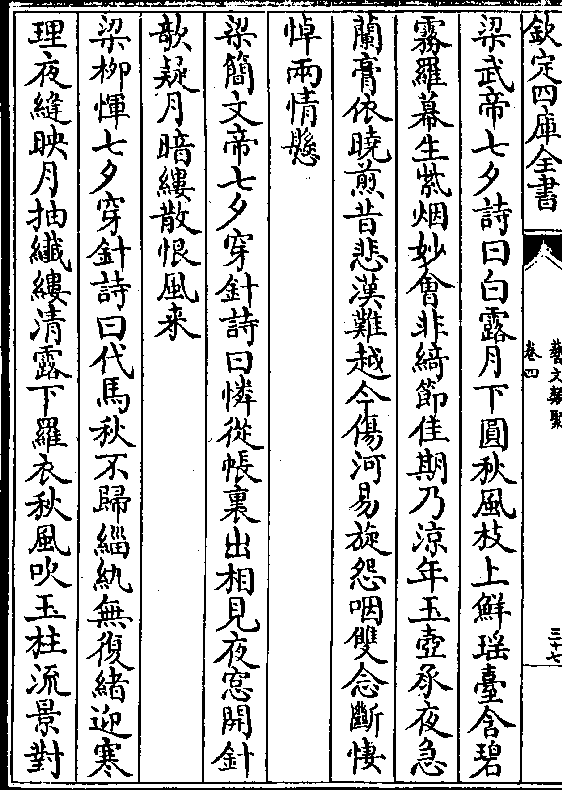 欽定四庫全書
藝文類聚
卷四
三十七
梁武帝七夕詩曰白露月下圓秋風枝上鮮瑶臺含碧
霧羅幕生紫烟妙會非綺節佳期乃涼年玉壺承夜急
蘭膏依曉煎昔悲漢難越今傷河易旋怨咽雙念斷悽
悼兩情懸
梁簡文帝七夕穿針詩曰憐從帳裏出相見夜窓開針
欹疑月暗縷散恨風来
梁柳惲七夕穿針詩曰代馬秋不歸緇紈無復緒迎寒
理夜縫映月抽纖縷清露下羅衣秋風吹玉柱流景對